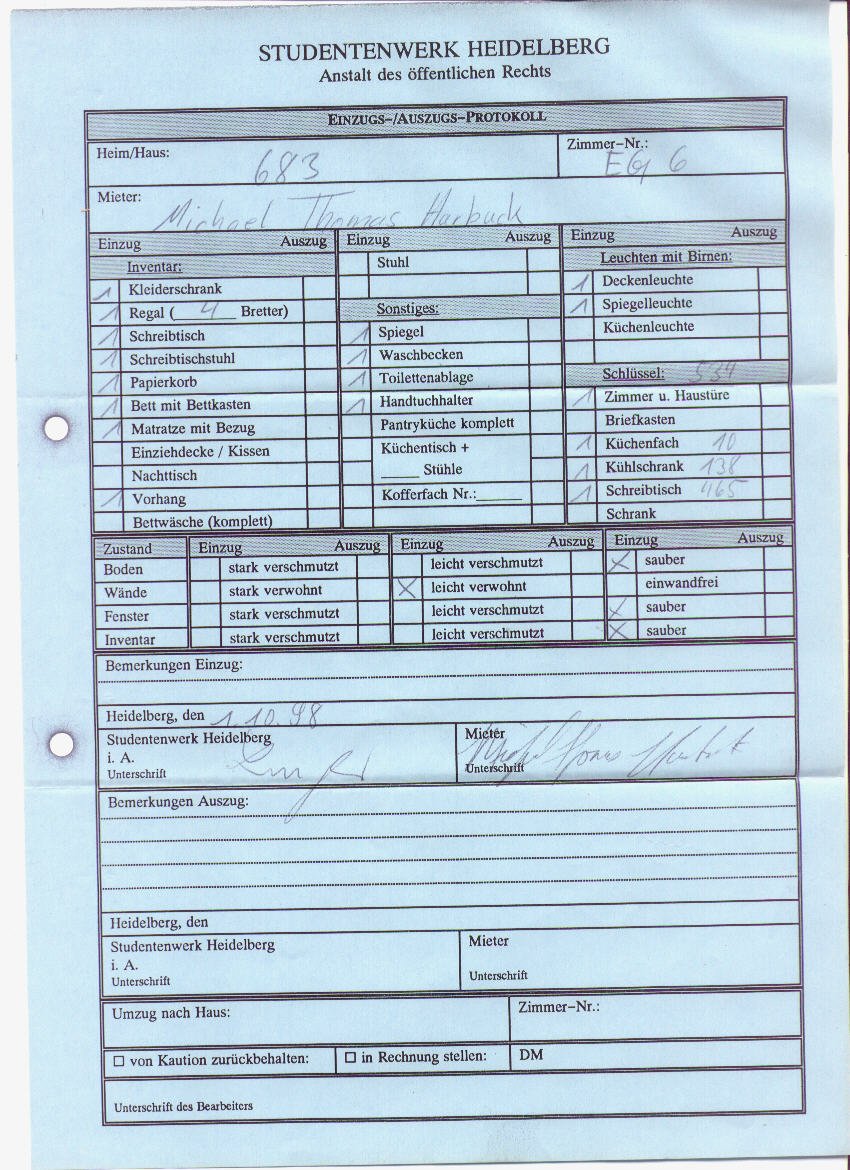 STUDENTENWERK HEIDELBERG
Anstalt des öffentlichen Rechts
EINZUGS-/AUSZUGS-PROTOKOLL
Heim/Haus: 683
Zimmer-Nr.: EG 6
Mieter: Michael Thomas Harbuck
Einzug Auszug
Inventar:
1 Kleiderschrank
1 Regal (4 Bretter)
1 Schreibtisch
1 Schreibtischstuhl
1 Papierkorb
1 Bett mit Bettkasten
1 Matratze mit Bezug
Einziehdecke / Kissen
Nachttisch
1 Vorhang
Bettwäsche (komplett)
Einzug Auszug
Stuhl
Sonstiges:
1 Spiegel
1 Waschbecken
1 Toilettenablage
1 Handtuchhalter
Pantryküche komplett
Küchentisch +
____ Stühle
Kofferfach Nr.:______
Einzug Auszug
Leuchten mit Birnen:
1 Deckenleuchte
1 Spiegelleuchte
Küchenleuchte
Schlüssel: 534
1 Zimmer u. Haustüre
Briefkasten
1 Küchenfach 10
1 Kühlschrank 138
1 Schreibtisch 465
Schrank
Zustand Einzug Auszug Einzug Auszug Einzug Auszug
Boden stark verschmutzt leicht verschmutzt X sauber
Wände stark verwohnt X leicht verwohnt einwandfrei
Fenster stark verschmutzt leicht verschmutzt X sauber
Inventar stark verschmutzt leicht verschmutzt X sauber
Bemerkungen Einzug:
Heidelberg, den 1.10.98
Studentenwerk Heidelberg
i. A.
Unterschrift
Mieter
Michael Thomas Harbuck
Unterschrift
Bemerkungen Auszug:
Heidelberg, den
Studentenwerk Heidelberg
i. A.
Unterschrift
Mieter
Unterschrift
Umzug nach Haus:
Zimmer-Nr.:
☐ von Kaution zurückbehalten:
☐ in Rechnung stellen:
DM
Unterschrift des Bearbeiters